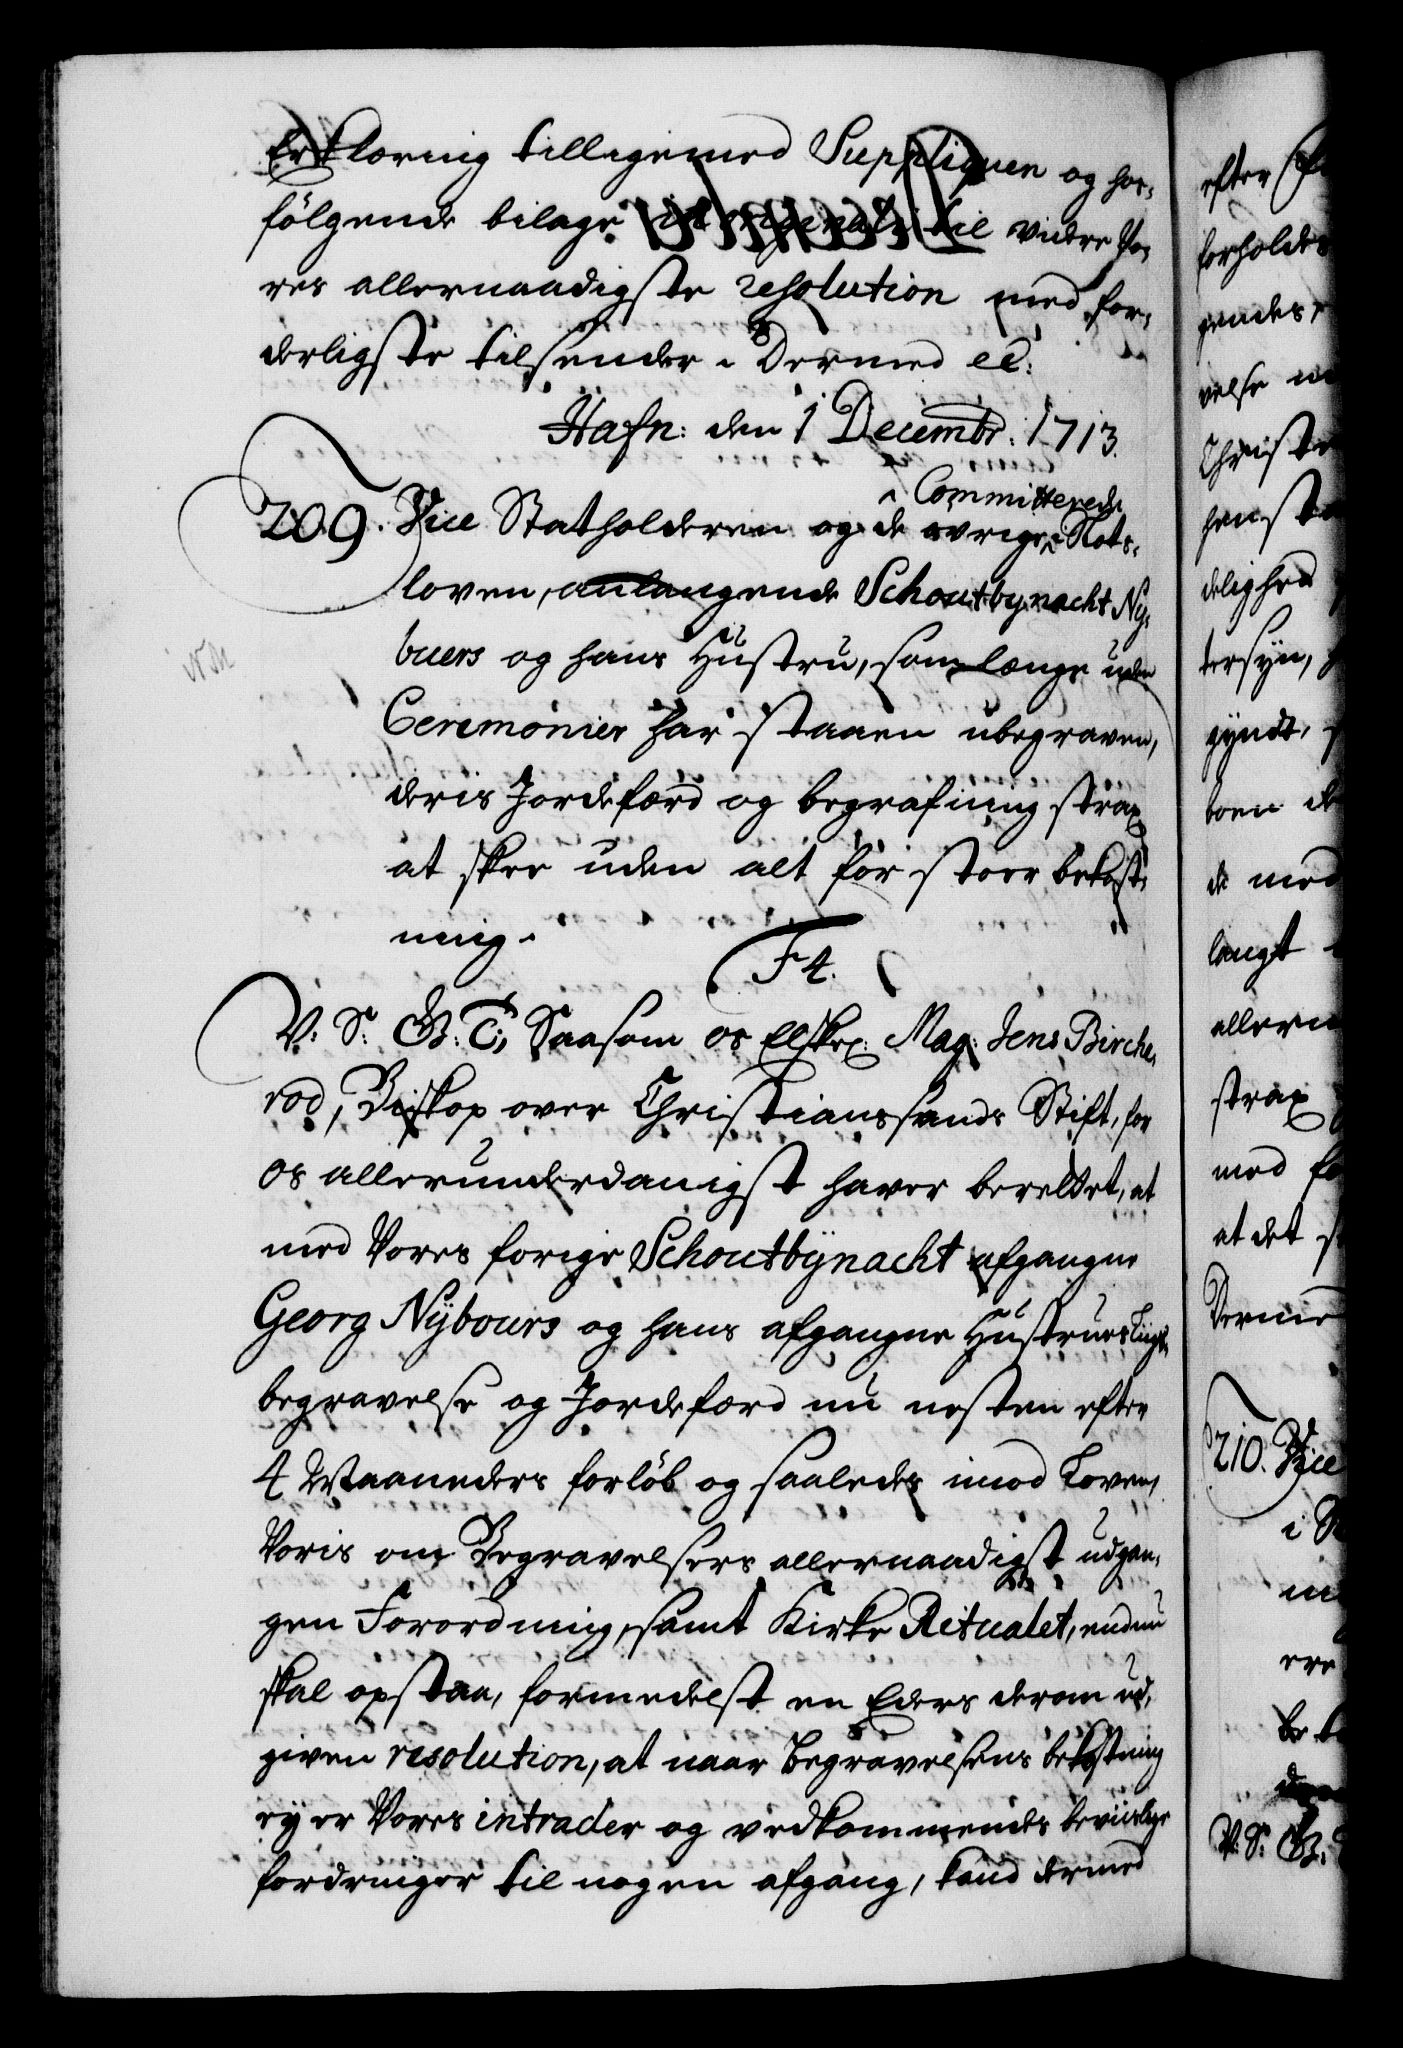 Erklæring tilligemed Suppliquen og hos-
fölgende bilage in originali til videre Vo-
res allernaadigste resolution med for-
derligste tilsender. Dermed etc:
Hafn: den 1 Decembr: 1713.
209. Vice Statholderen og de øvrige Committerede i Slots-
loven, anlangende Schoutbynacht Ny-
buers og hans Hustru, som længe uden
Ceremonier har staaen ubegraven,
deris Jordefærd og begrafning strax
at skee uden alt for stoer bekost-
ning.
F 4.
V: S: G: T: Saasom os Elskel: Mag: Jens Birche-
rod, Biskop over Christianssands Stift, for
os allerunderdanigst haver berettet, at
med Vores forige Schoutbÿnacht afgangne
Georg Nÿbours og hans afgangne Hustrues Liigs
begravelse og Jordefærd nu nesten efter
4 Maaneders forløb og saaledes imod Loven,
Voris om Begravelsers allernaadigst udgan-
gen Forordning, samt Kirke Ritualet, endnu
skal opstaa, formedelst en Eders derom ud-
given resolution, at naar Begravelsens bekostning
ey er Vores intrader og vedkommendes beviislige
fordringer til nogen afgang, kand dermed
efter
forholde
gendes
velse
Christ
hen st
delighed
tersyn,
gyndt,
boen de
de med
langt
allern
strax
med
at det
Dermed
210. Vice
i S
ere
V: S: G: